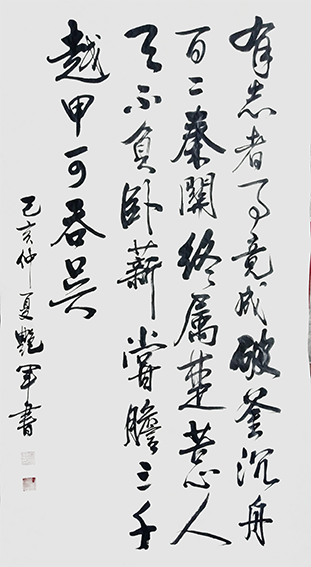 有志者事竟成破釜沉舟
百二秦關終属楚苦心人
天不負卧薪嘗膽三千
越甲可吞吴
己亥仲夏艷軍書